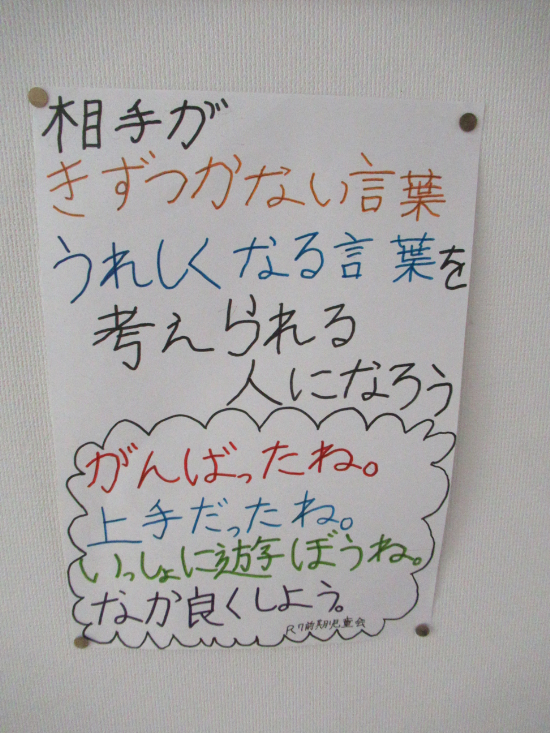 相手が
きずつかない言葉
うれしくなる言葉を
考えられる
人になろう
がんばったね。
上手だったね。
いっしょに遊ぼうね。
なか良くしよう。
R7前期児童会